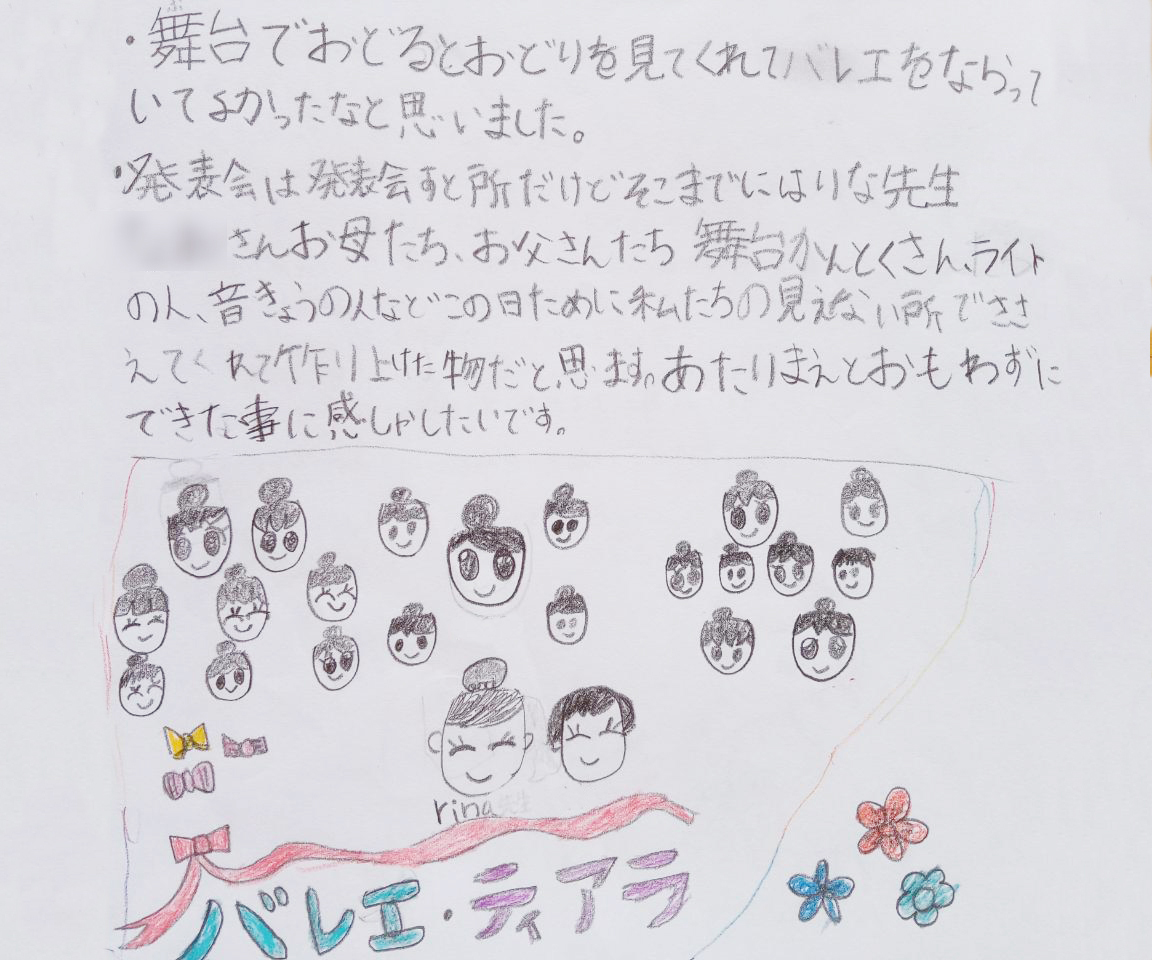 ・舞台でおどるとおどりを見てくれてバレエをならって
いてよかったなと思いました。
・発表会は発表会すと所だけどそこまでにはりな先生
さんお母たち、お父さんたち 舞台かんとくさん、ライト
の人、音きょうの人などこの日ために私たちの見えない所でささ
えてくれて作り上げた物だと思います。あたりまえとおもわずに
できた事に感しゃしたいです。
rina先生
バレエ・ティアラ